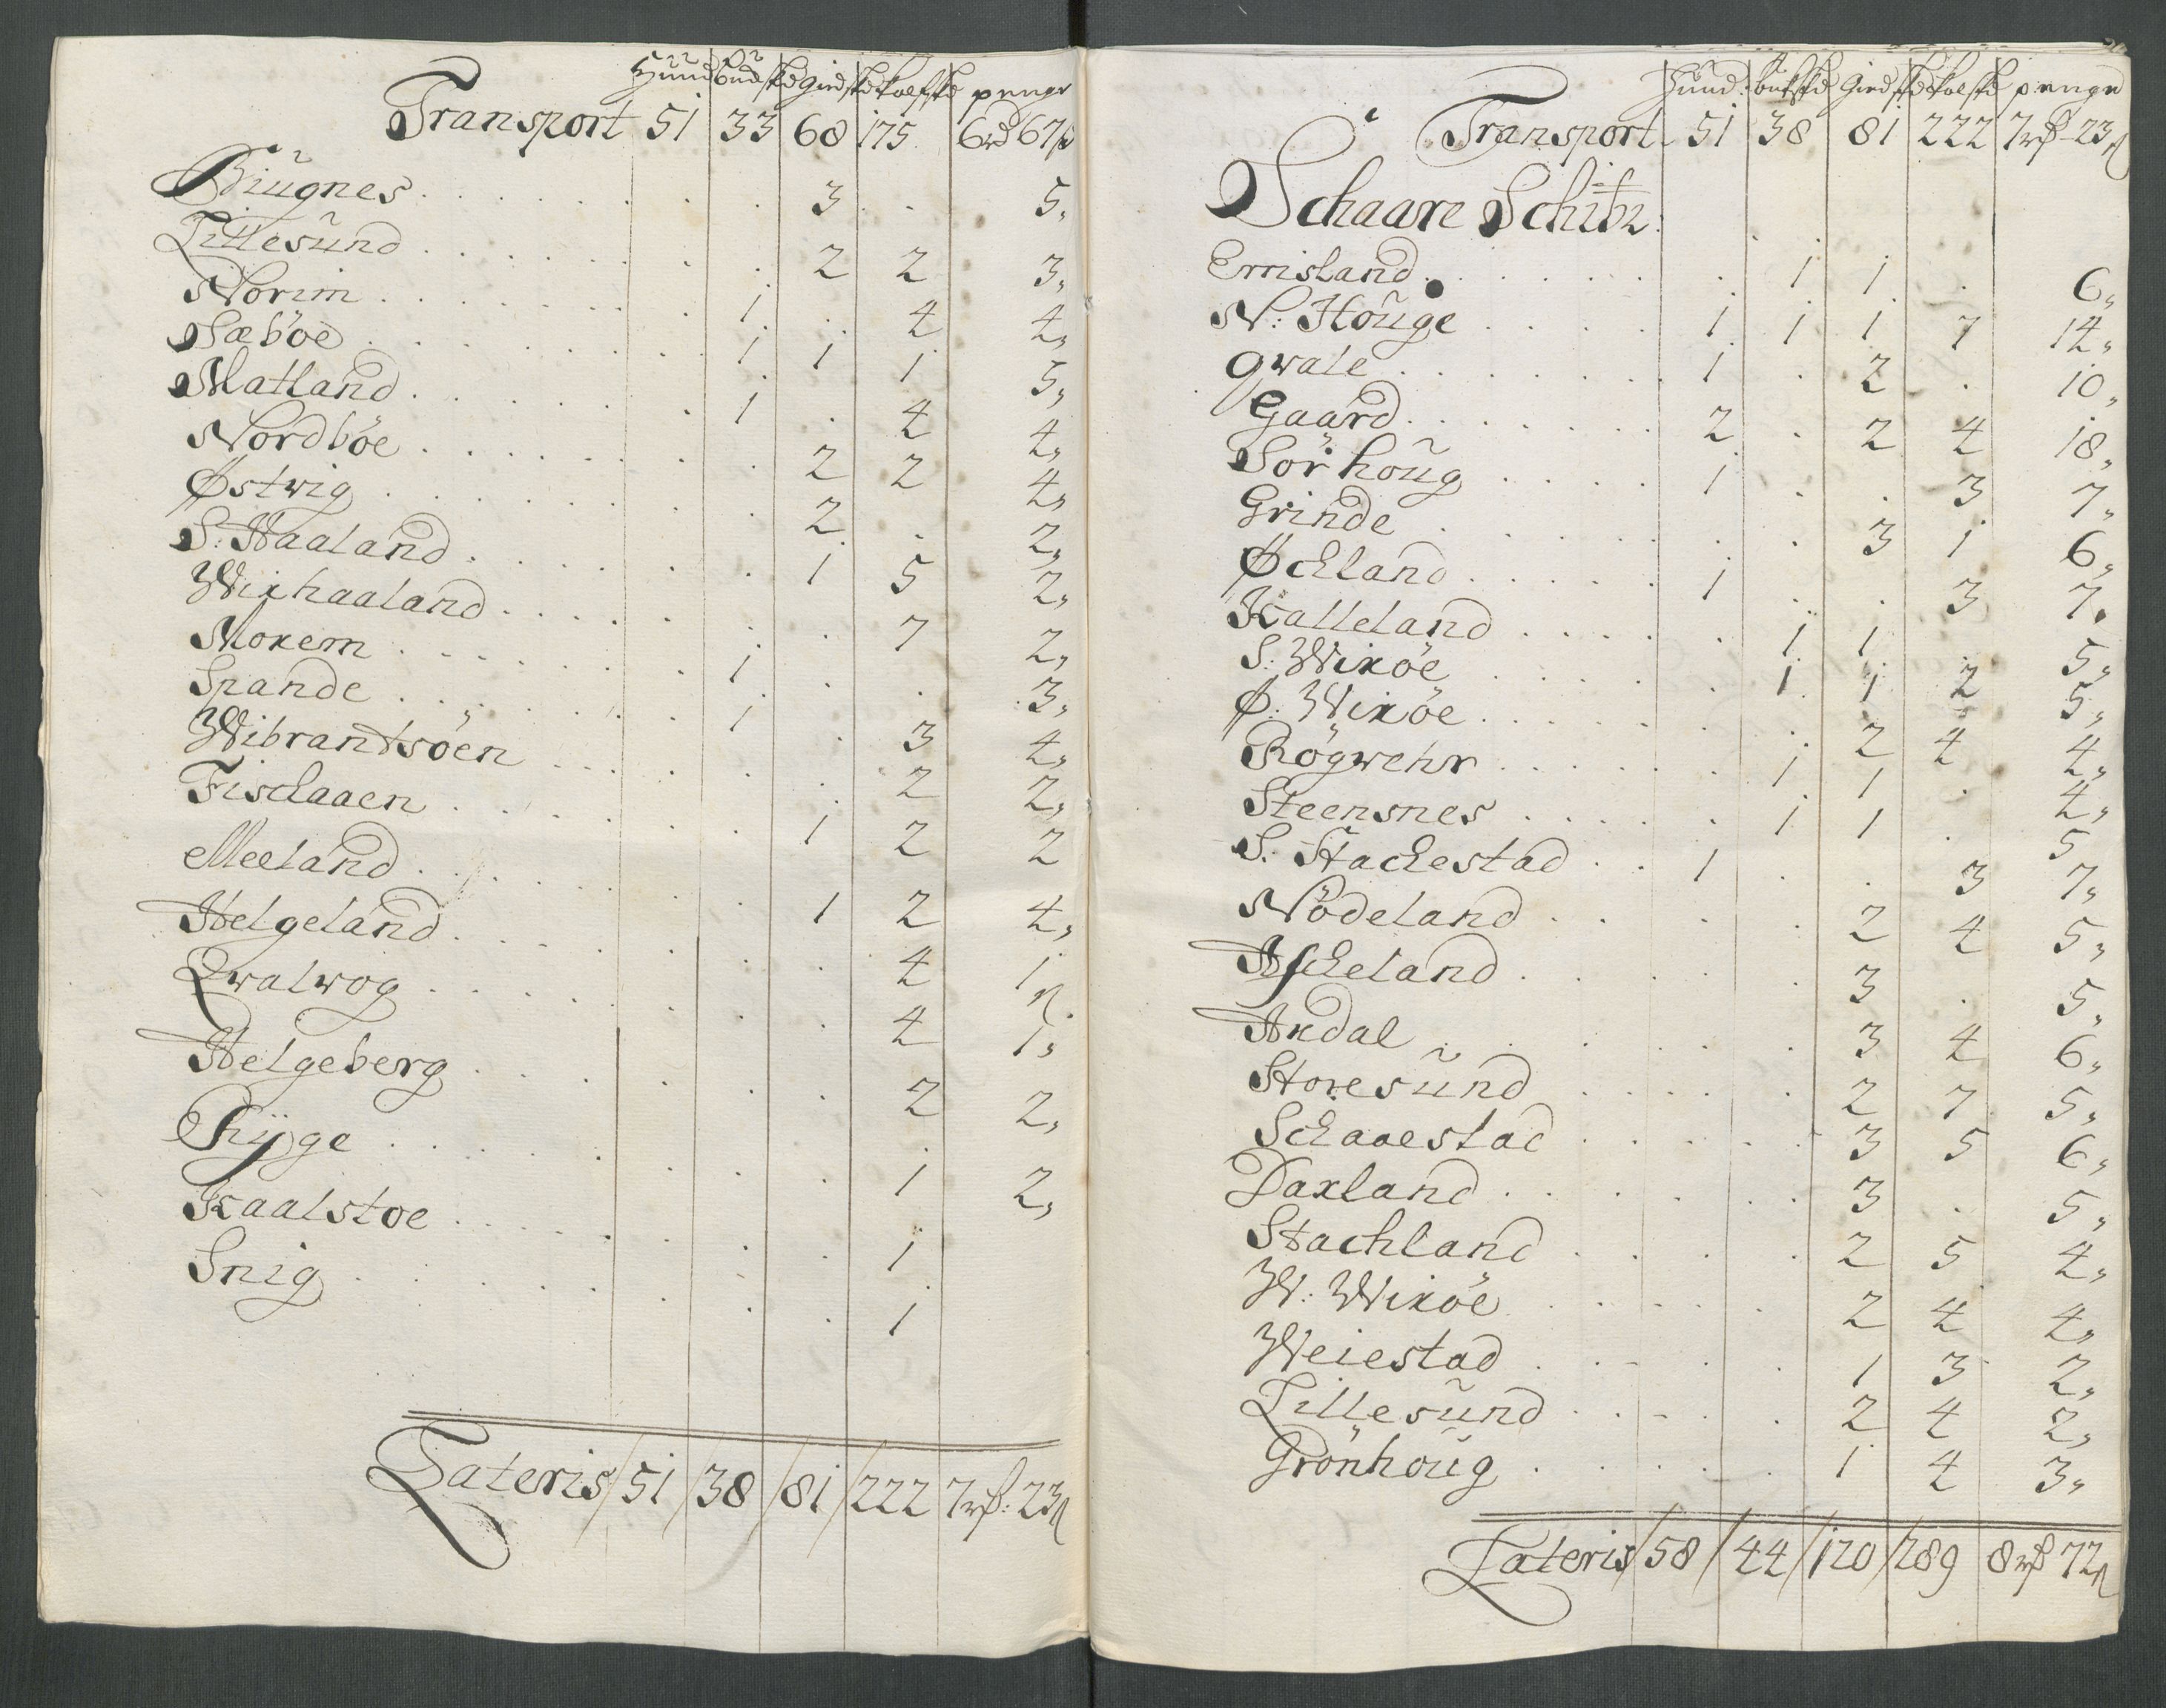 Hund bud skd gied skd kalfskd penge
Transport 51 33 68 175 6rd 67s
Biugnes 3 5
Lillesund 2 2 3
Norim 1 4 4
Sæböe 1 1 1 5
Matland 1 4 4
Nordböe 2 2 4
Østvig 2 2
S: Haaland 1 5 2
Wixhaaland 7 2
Moxem 1 3
Spande 1 3 4
Wibrantsöen 2 2
Fisckaaen 1 2 2
Meeland 1 2 4
Helgeland 4 1
Qvalvog 4 1
Helgeberg 2 2
Rÿge 1 2
Kaalstoe 1
Snig 1
Lateris 51 38 81 222 7 23
Hund: buk skd Gied skd kalfskd penge
Transport 51 38 81 222 7 23
Schaare Schib:
Ernsland 1 1 6
N: Houge 1 1 1 7 14
Qvale 1 2 10
Gaard 2 2 4 18
Sörhoug 1 3 7
Grinde 3 1 6
Øckland 1 3 7
Kalleland 1 1 5
S: Wixöe 1 1 2 5
Ø: Wixöe 2 4 4
Rögwehr 1 1 4
Steensnes 1 1 5
S: Stackestad 1 3 7
Nödeland 2 4 5
Asckeland 3 5
Axdal 3 4 6
Storesund 2 7 5
Sckaaestad 3 5 6
Daxland 3 5
Stachland 2 5 4
W: Wixöe 2 4 4
Weiestad 1 3 2
Lillesund 2 4 2
Grönhoug 1 4 3
Lateris 58 44 120 289 8 72